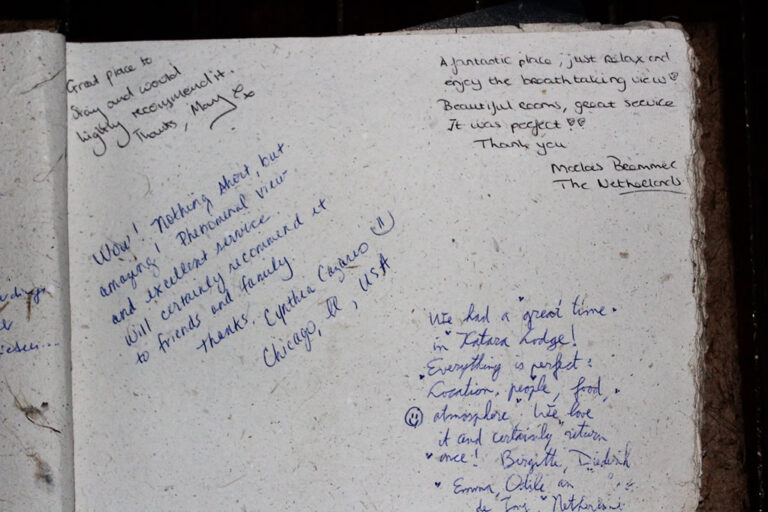 Great place to
stay and would
highly recommend it.
Thanks, Mary xx
A fantastic place, just relax and
enjoy the breathtaking view
Beautiful rooms, great service
It was perfect !!
Thank you
The Netherlands
Wow! Nothing short, but
amazing! Phenomenal view
and excellent service
Will certainly recommend it
to friends and family
Thanks. Cynthia Cazares
Chicago, Il, USA
We had a great time
in Katara Lodge!
Everything is perfect:
Location, people, food,
atmosphere. We love
it and certainly return
once! Birgitte, Diederik
Emma, Odile an
de